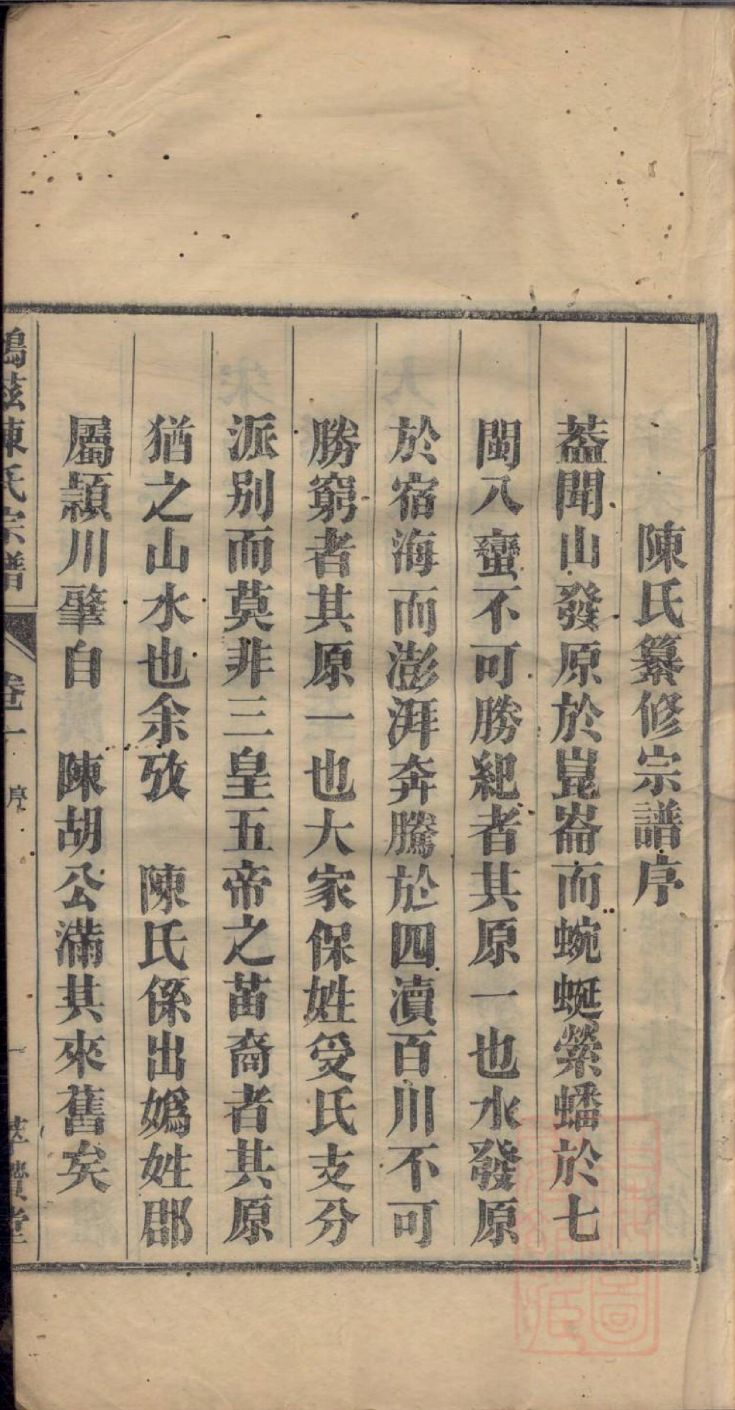 陳氏纂修宗譜序
葢聞山發原於崑崙而蜿蜒縈蟠於七
閩八蠻不可勝紀者其原一也水發原
於宿海而澎湃奔騰於四瀆百川不可
勝窮者其原一也大家保姓受氏支分
派別而莫非三皇五帝之苗裔者其原
猶之山水也余攷　陳氏係出嬀姓郡
屬潁川肇自　陳胡公滿其來舊矣
鳩茲陳氏宗譜　卷一　序　一